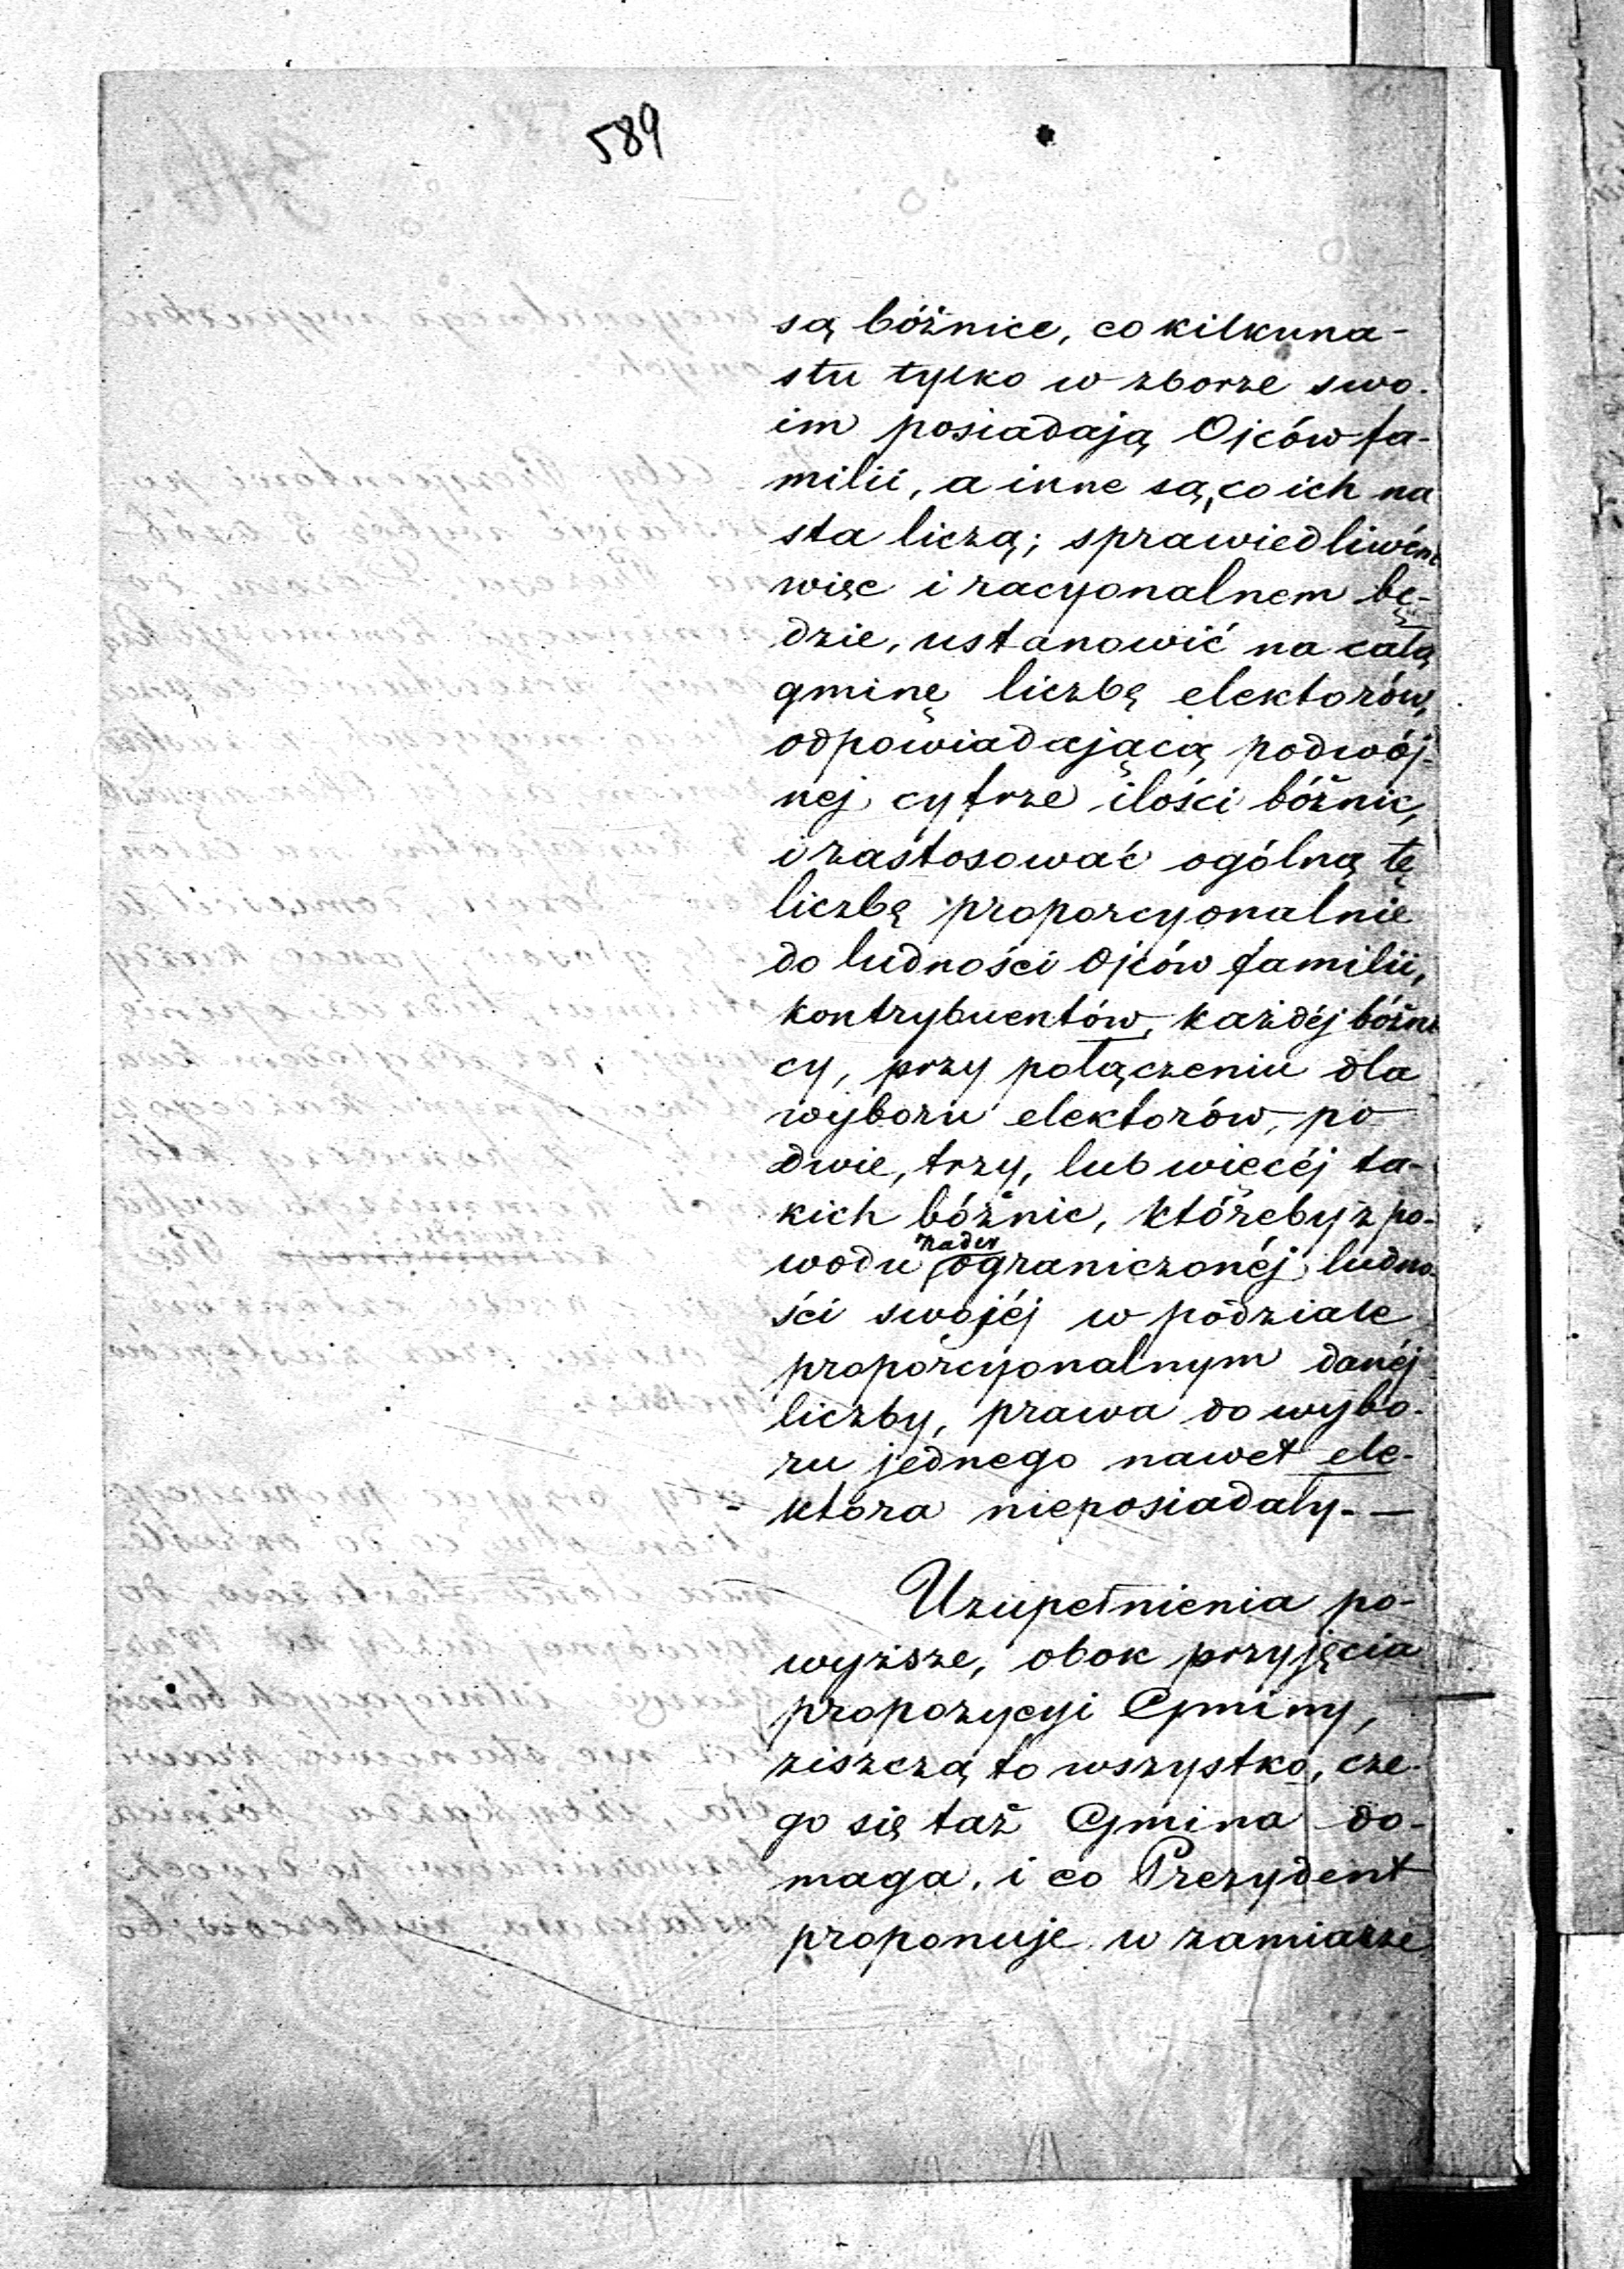 589
są bóżnice, co kilkuna-
stu tylko w zborze swo-
im posiadają Ojców fa-
milii, a inne są, co ich na
sta liczą; sprawiedliwém
więc i racyonalnem bę-
dzie, ustanowić na całą
gminę liczbę elektorów,
odpowiadającą podwój-
nej cyfrze ilości bóżnic,
i zastosować ogólną tę
liczbę proporcyonalnie
do ludności Ojców familii,
kontrybuentów, każdéj bóżni
cy, przy połączeniu dla
wyboru elektorów, po
dwie, trzy, lub więcéj ta-
kich bóżnic, któreby z po-
nader
wodu ograniczonéj ludno-
ści swojéj w podziale
proporcyonalnym danéj
liczby, prawa do wybo-
ru jednego nawet ele-
ktora nieposiadały. —
Uzupełnienia po-
wyższe, obok przyjęcia
propozycyi Gminy,
ziszczą to wszystko, cze-
go się taż Gmina do-
maga, i co Prezydent
proponuje w zamiarze